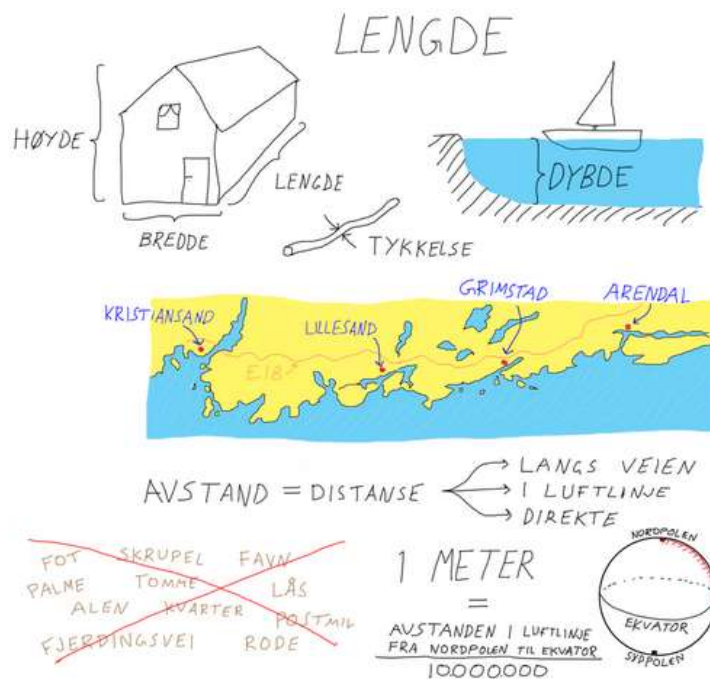 LENGDE
HØYDE
LENGDE
BREDDE
TYKKELSE
DYBDE
KRISTIANSAND
LILLESAND
GRIMSTAD
ARENDAL
E18
AVSTAND = DISTANSE
LANGS VEIEN
I LUFTLINJE
DIREKTE
FOT SKRUPEL FAVN
PALME TOMME LÅS
ALEN KVARTER POSTMIL
FJERDINGSVEI RODE
1 METER
=
AVSTANDEN I LUFTLINJE
FRA NORDPOLEN TIL EKVATOR
10.000.000
NORDPOLEN
EKVATOR
SYDPOLEN